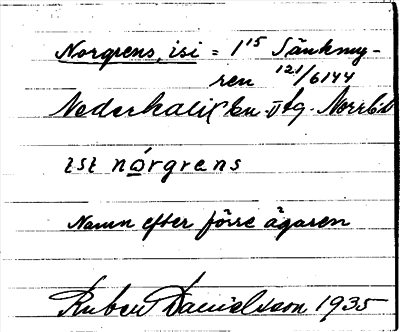 Norgrens, isi = 1¹⁵ Sänkmy-
ren 121/6144
Nederkalix sn. tg. Norrb.
ɩsɩ nórgrens
Namn efter förre ägaren
Ruben Danielsson 1935